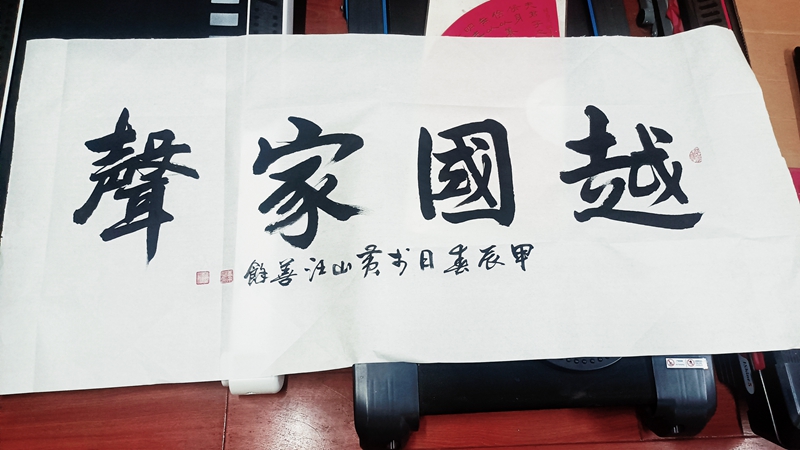 越國家聲
甲辰春日於黄山汪善餘